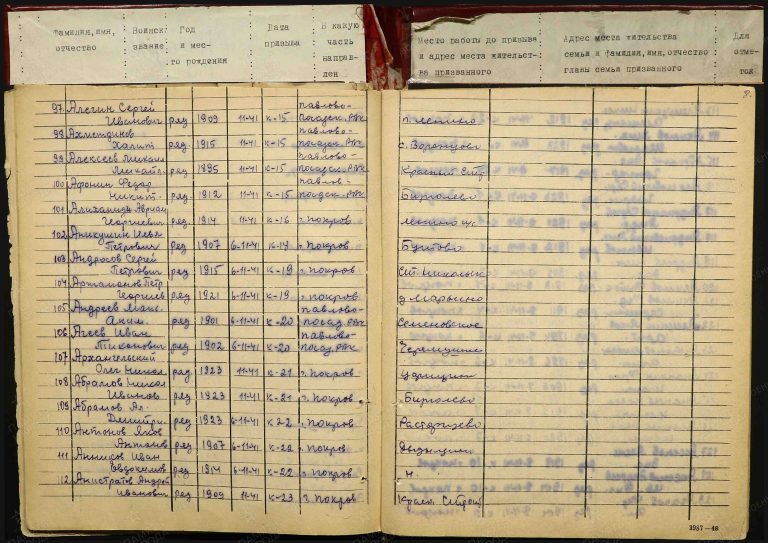 Фамилия, имя,
отчество
Воинск.
звание
Год
и мес-
то рождения
Дата
призыва
В какую
часть
направ-
лен
Место работы до призыва
и адрес места жительст-
ва призванного
Адрес места жительства
семьи и фамилия, имя, отчество
главы семьи призванного
Для
отме-
ток
8.
97 Алегин Сергей павлово-
Иванович ряд 1909 11-41 к-15 посадск. РВК п. ленино
98 Ахметдинов павлово-
Халит ряд 1915 11-41 к-15 посадск. РВК с. Воронцово
99 Алексеев Михаил павлово-
Михайл. ряд 1895 11-41 к-15 посадск. РВК Красный Стр
100 Афонин Федор павлов-
Никит. ряд 1912 11-41 к-15 посадск. РВК Бирюлево
101
Георгиевич ряд 1914 11-41 к-16 г. Покров
102 Аникушин Илья
Петрович ряд 1907 6-11-41 к-17 г. Покров Бутово
103 Андросов Сергей
Петрович ряд 1915 6-11-41 к-19 г. покров
104 Артамонов Петр
Георгиев ряд 1921 6-11-41 к-19 г. покров д Марьино
105 Андреев павлово-
Аким. ряд 1901 6-11-41 к-20 посад. РВК Семеновское
106 Агеев Иван павлово-
Тихонович ряд 1902 6-11-41 к-20 посад. РВК Черемушки
107 Архангельский
Олег Никол ряд 1923 11-41 к-21 г. Покров Царицын
108 Абрамов Никол
Иванов ряд 1923 11-41 к-21 г. Покров Бирюлево
109 Абрамов Ал.
Дмитри. ряд 1923 6-11-41 к-22 г. Покров Растаргуево
110 Антонов Яков
Антонов ряд 1907 6-11-41 к-22 г. покров
111 Ан Иван
Евдокимов ряд 1914 6-11-41 к-22 г. покров Н.
112 Анистратов Андрей
Иванович ряд 1909 11-41 к-23 г Покров Красн Строй
3987-48